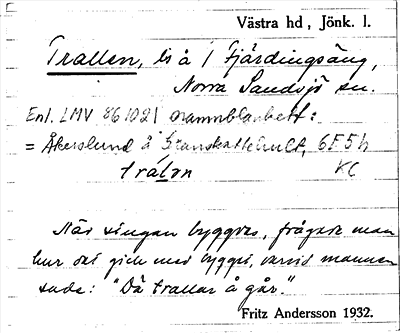 Västra hd, Jönk. l.
Trallen, ls å 1 Fjärdingsäng,
Norra Sandsjö sn.
Enl. LMV 861021 namnblankett:
= Åkerslund å Granskattehult, 6F5h
tràlọn KC
När stugan byggdes, frågade man
hur det gick med bygget, varvid mannen
sade: "Dä trallar å går."
Fritz Andersson 1932.